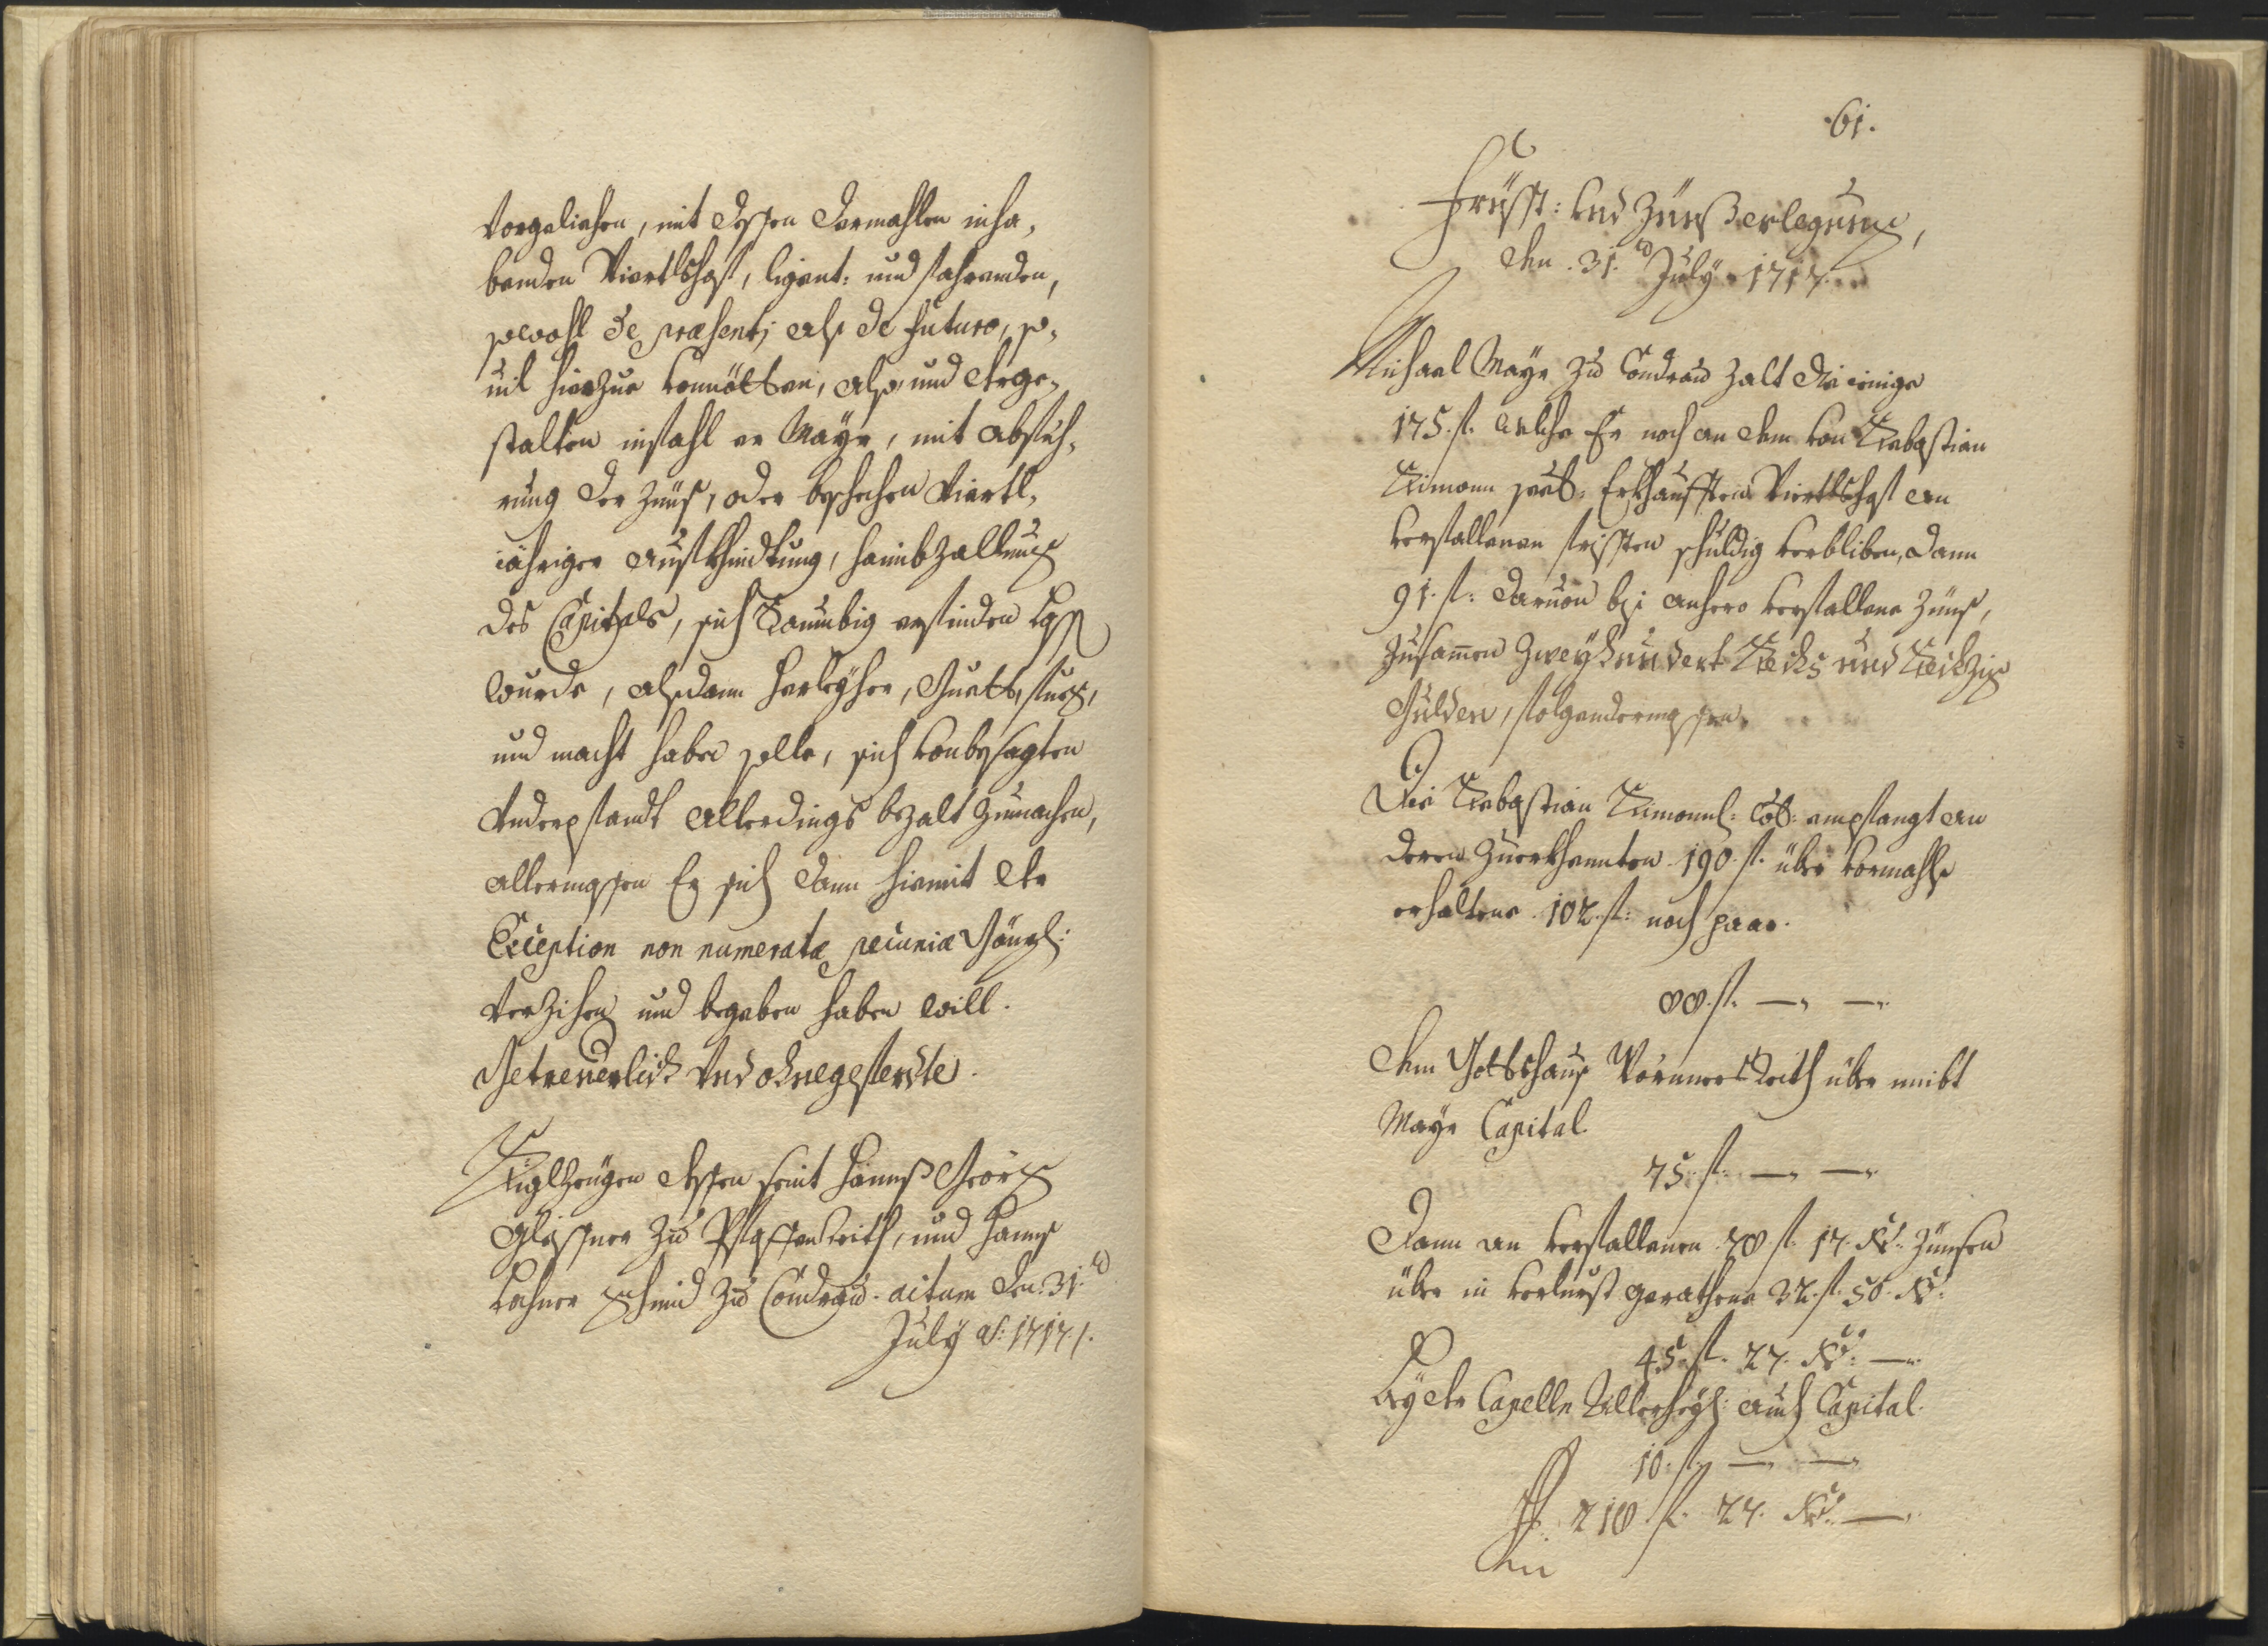 vorgelichen, mit dessen dermahlen inha-
benden Viertlshof, ligent: und fahrenden,
sowohl de præsenti als de futuro, so-
uil hierzue vonnötten, also und derge-
stalten instahl er Mayr, mit abfüh-
rung der Zünß, oder beschehen Viertl-
iähriger aufkhündtung, haimbzallung
des Capitals, sich Saumbig erfinden lass
wurde, alsdann Verleyher, Guett, fueg,
und macht haben solle, sich von besagten
Underpfandt allerdings bezalt zumachen,
allermassen Er sich dann hiemit der
Exception non numeratæ pecuniæ Gänzl:
Verzihen und begeben haben will.
Getreuerlich Und ohnegeferdte.
Siglzeugen dessen seint Hannß Geörg
Gleissner zu Pfaffenreith, und Hannß
Lohner Schmid zu Condrau. actum den 31.ten
July aõ: 1717.
.61.
Frisst: und Zünßerlegung,
den .31.ten July .1717.
Michael Mayr zu Condrau zalt die ienige
175. fl. welche Er noch an dem von Sebastian
Simonn seel: Erkhaufften Viertlshof an
verfallenen fristen schuldig verbliben, dann
91. fl: daruon bis anhero verfallene Zünß,
zusamen Zweyhundert Sechs und Sechzig
Gulden, folgendermassen.
Die Sebastian Simonnl: empfangt an
deren zuerkhannten .190. fl. über vormahls
erhaltene .102. fl: noch paar.
88. fl. — —
Dem Gottshauß Wernersreith über
Mayr Capital.
75. fl. — —
Dann an verfallenen .78 fl. 17. Kr: Zünsen
über in verlurst gerathene 32. fl. 50. Kr:
45. fl. 27. Kr: —
Bey der Capelle Allerheyl: auch Capital.
10. fl. — —
218 fl. 27. Kr: —
Die